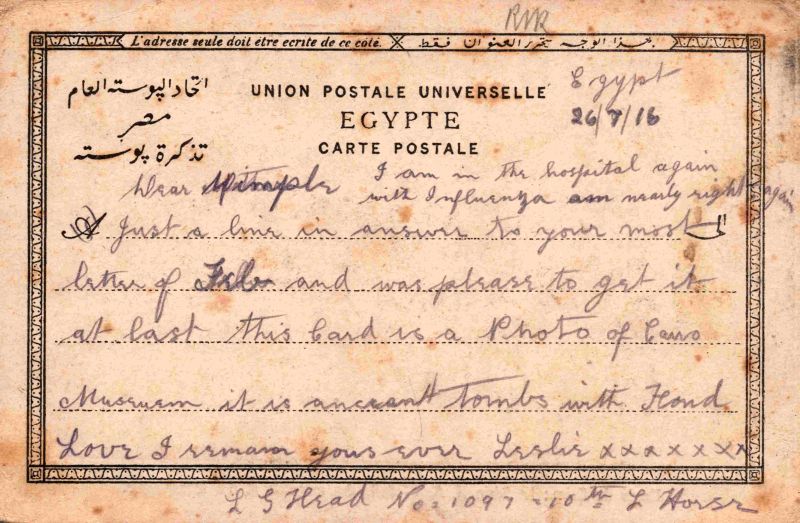 RMR
L'adresse seule doit être écrite de ce côté. بهذا الوجه يتحرر العنوان فقط
اتحاد البوسته العام
مصر
تذكرة بوسته
UNION POSTALE UNIVERSELLE
EGYPTE
CARTE POSTALE
Egypt
26/7/16
Dear
I am in the hospital again
with Influenza am nearly right again
A Just a line in answer to your most الى
letter of Feb and was please to get it
at last this Card is a Photo of Cairo
Museuem it is anceant tombs with Fond
Love I remain yous ever Leslie x x x x x x x
L G Head No. 1097 10th L Horse